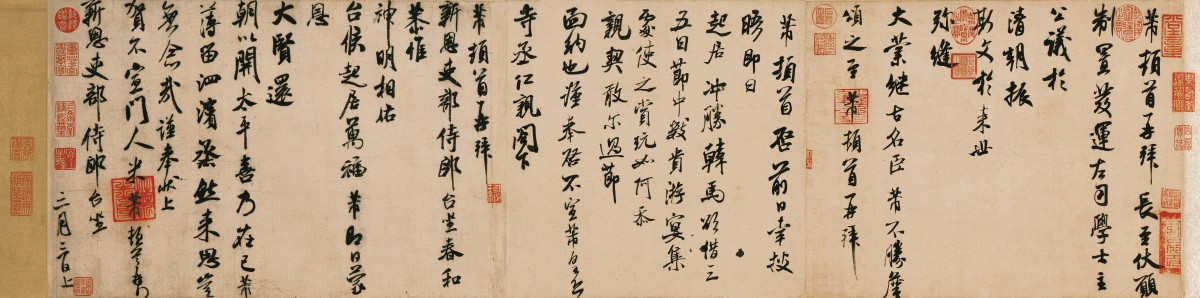 芾頓首再拜 長至伏願
制置發運左司學士主
公議於
清朝振
斯文於來世
彌縫
大業繼古名臣芾不勝摩
頌之至 芾頓首再拜
芾頓首啓前日幸披
晤即日
起居沖勝韓馬欲借三
五日節中數貴游宴集
處使之賞玩如何忝
親契敢尔過節
面納也謹奉啓不宣芾
寺丞仁親閣下
芾頓首再拜
新恩吏部侍郎台坐春和
恭惟
神明相佑
台候起居萬福芾即日蒙
恩
大賢還
朝以開太平喜乃在己芾
薄留泗濱蒸然來思豈
無念哉謹奉狀上
賀不宣門人米芾頓首
新恩吏部侍郎台坐
三月二日上